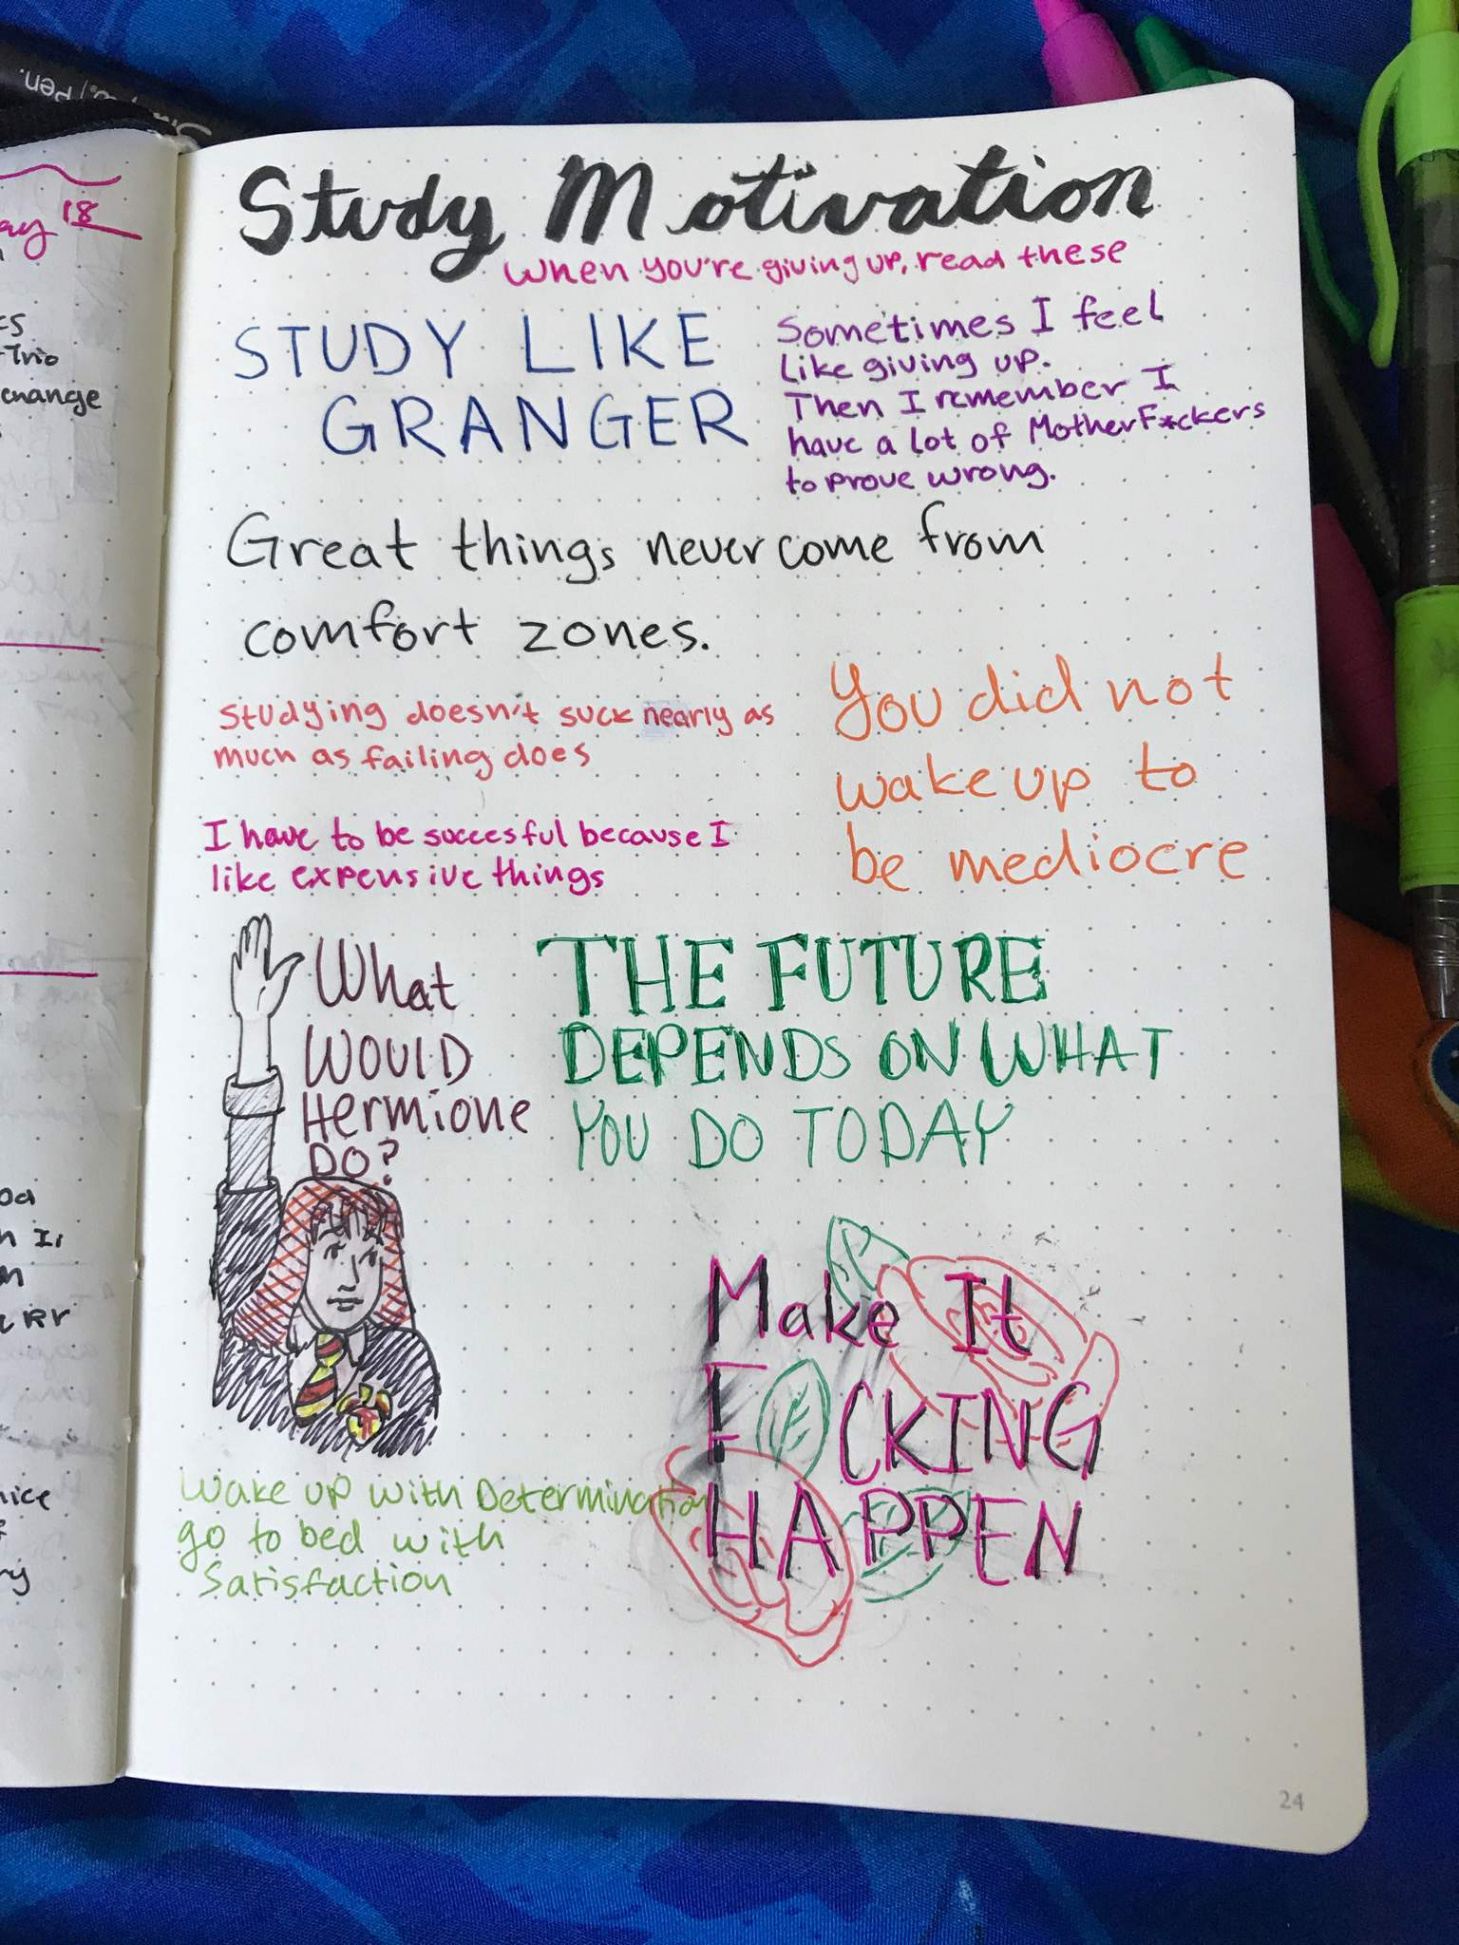 Study Motivation
When you're giving up, read these
STUDY LIKE
GRANGER
Sometimes I feel
like giving up.
Then I remember I
have a lot of MotherF*ckers
to prove wrong.
Great things never come from
comfort zones.
Studying doesn't suck nearly as
much as failing does
You did not
wake up to
be mediocre
I have to be succesful because I
like expensive things
What
WOULD
Hermione
DO?
THE FUTURE
DEPENDS ON WHAT
YOU DO TODAY
Make It
F CKING
HAPPEN
Wake up with Determination
go to bed with
Satisfaction
24
18
Trio
change
Pen.